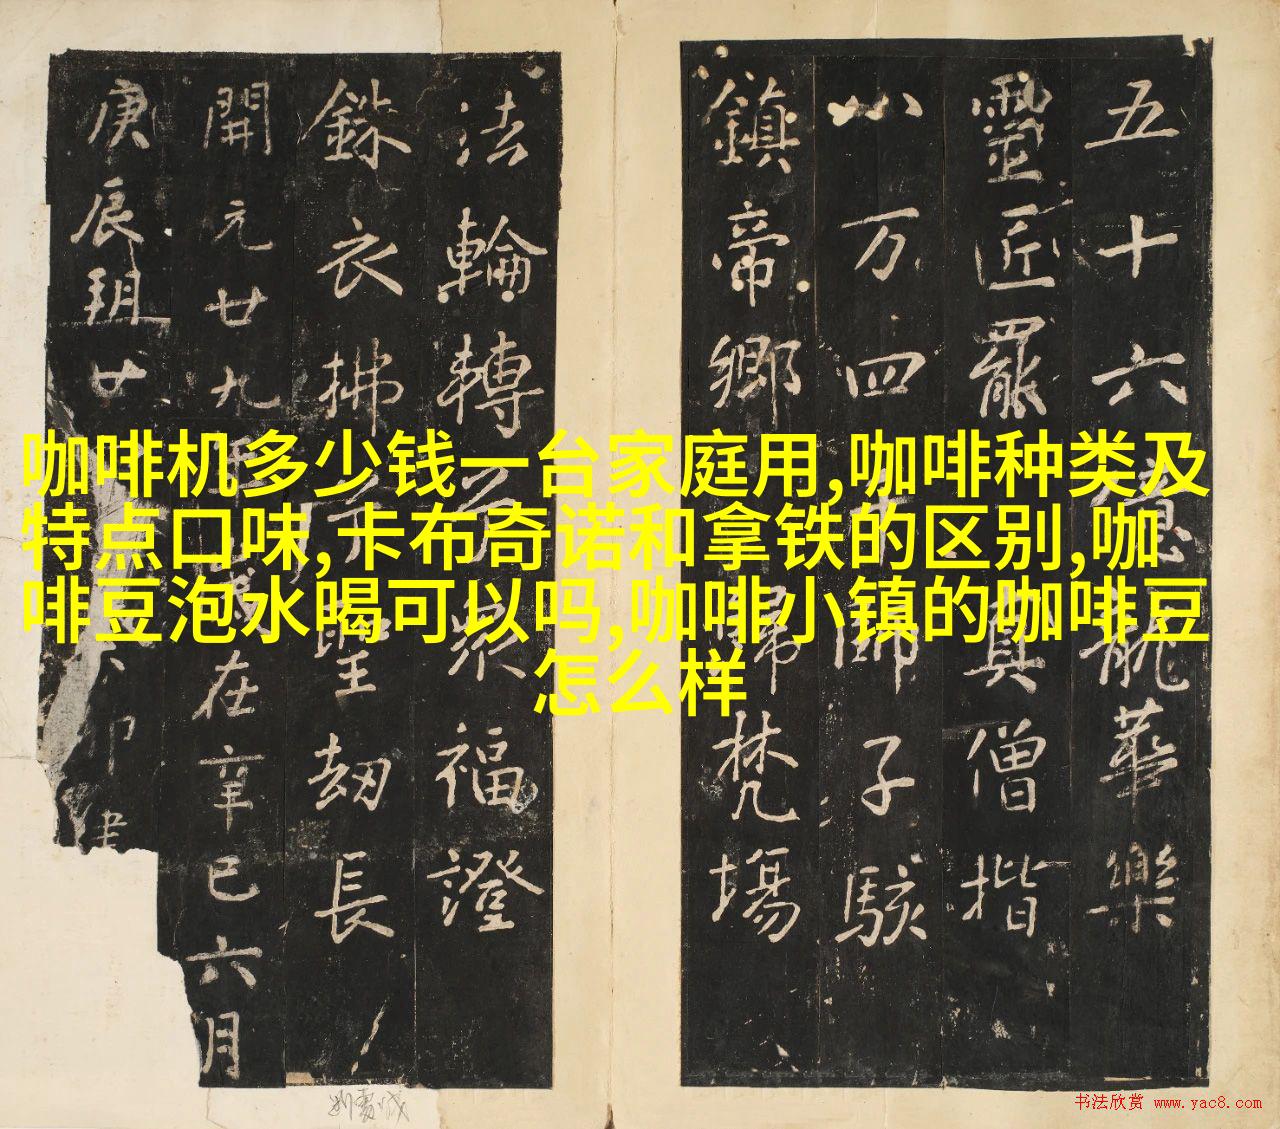 咖啡机多少钱一台家庭用,咖啡种类及
特点口味,卡布奇诺和拿铁的区别,咖
啡豆泡水喝可以吗,咖啡小镇的咖啡豆
怎么样
五十六
靈匠罷
真僧揩
八万四
師子駭
鎮帝鄉
歸梵場
法輪轉
眾福澄
銖衣拂
聖劫長
開元廿九
在辛巳六月
庚辰玥廿
書法欣赏 www.yac8.com